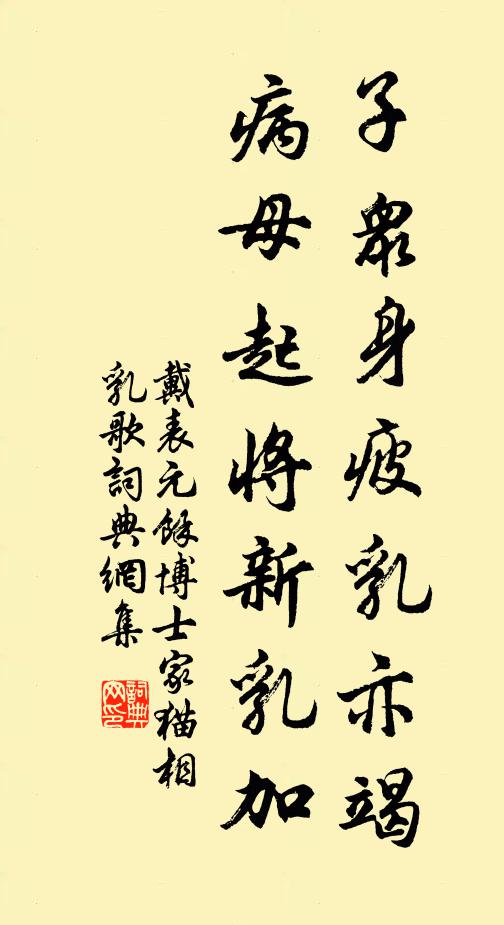 子眾身疲乳亦竭
病母起將新乳加
戴表元餘博士家猫相
乳歌詞典網集
詞典网印